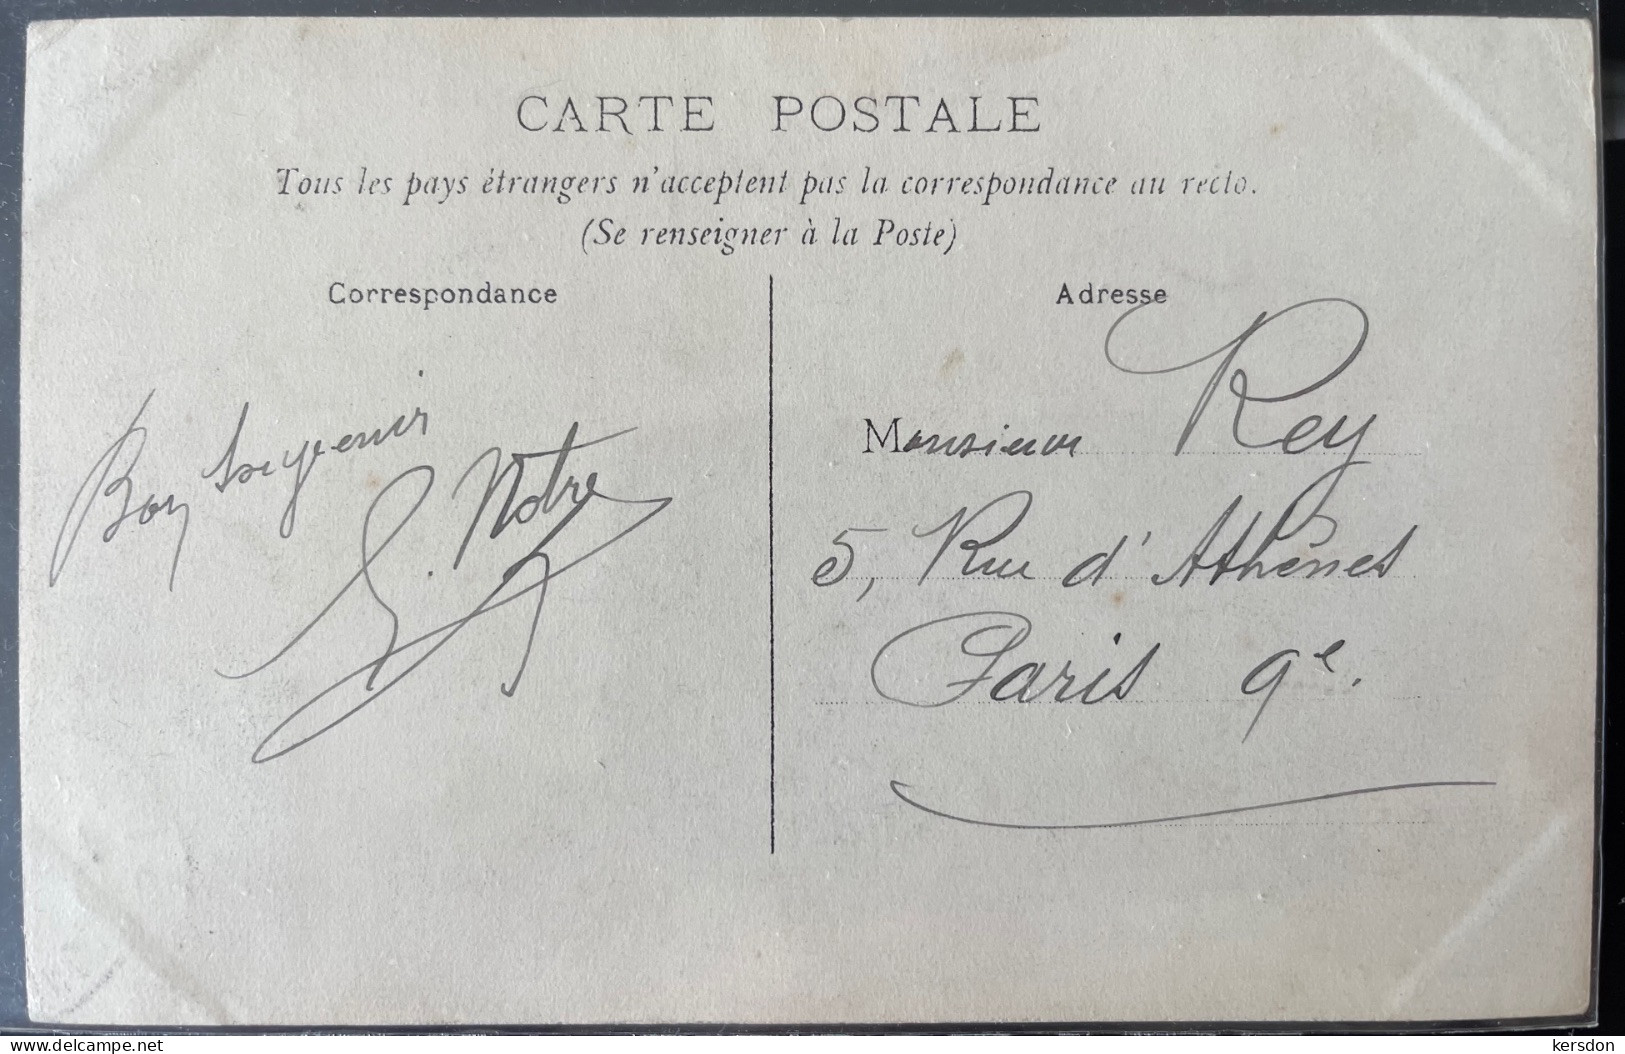 CARTE POSTALE
Tous les pays étrangers n'acceptent pas la correspondance au recto.
(Se renseigner à la Poste)
Correspondance
Bon souvenir
Notre
Adresse
Monsieur Rey
5, Rue d'Athènes
Paris 9e.
delcampe.net
kersdon